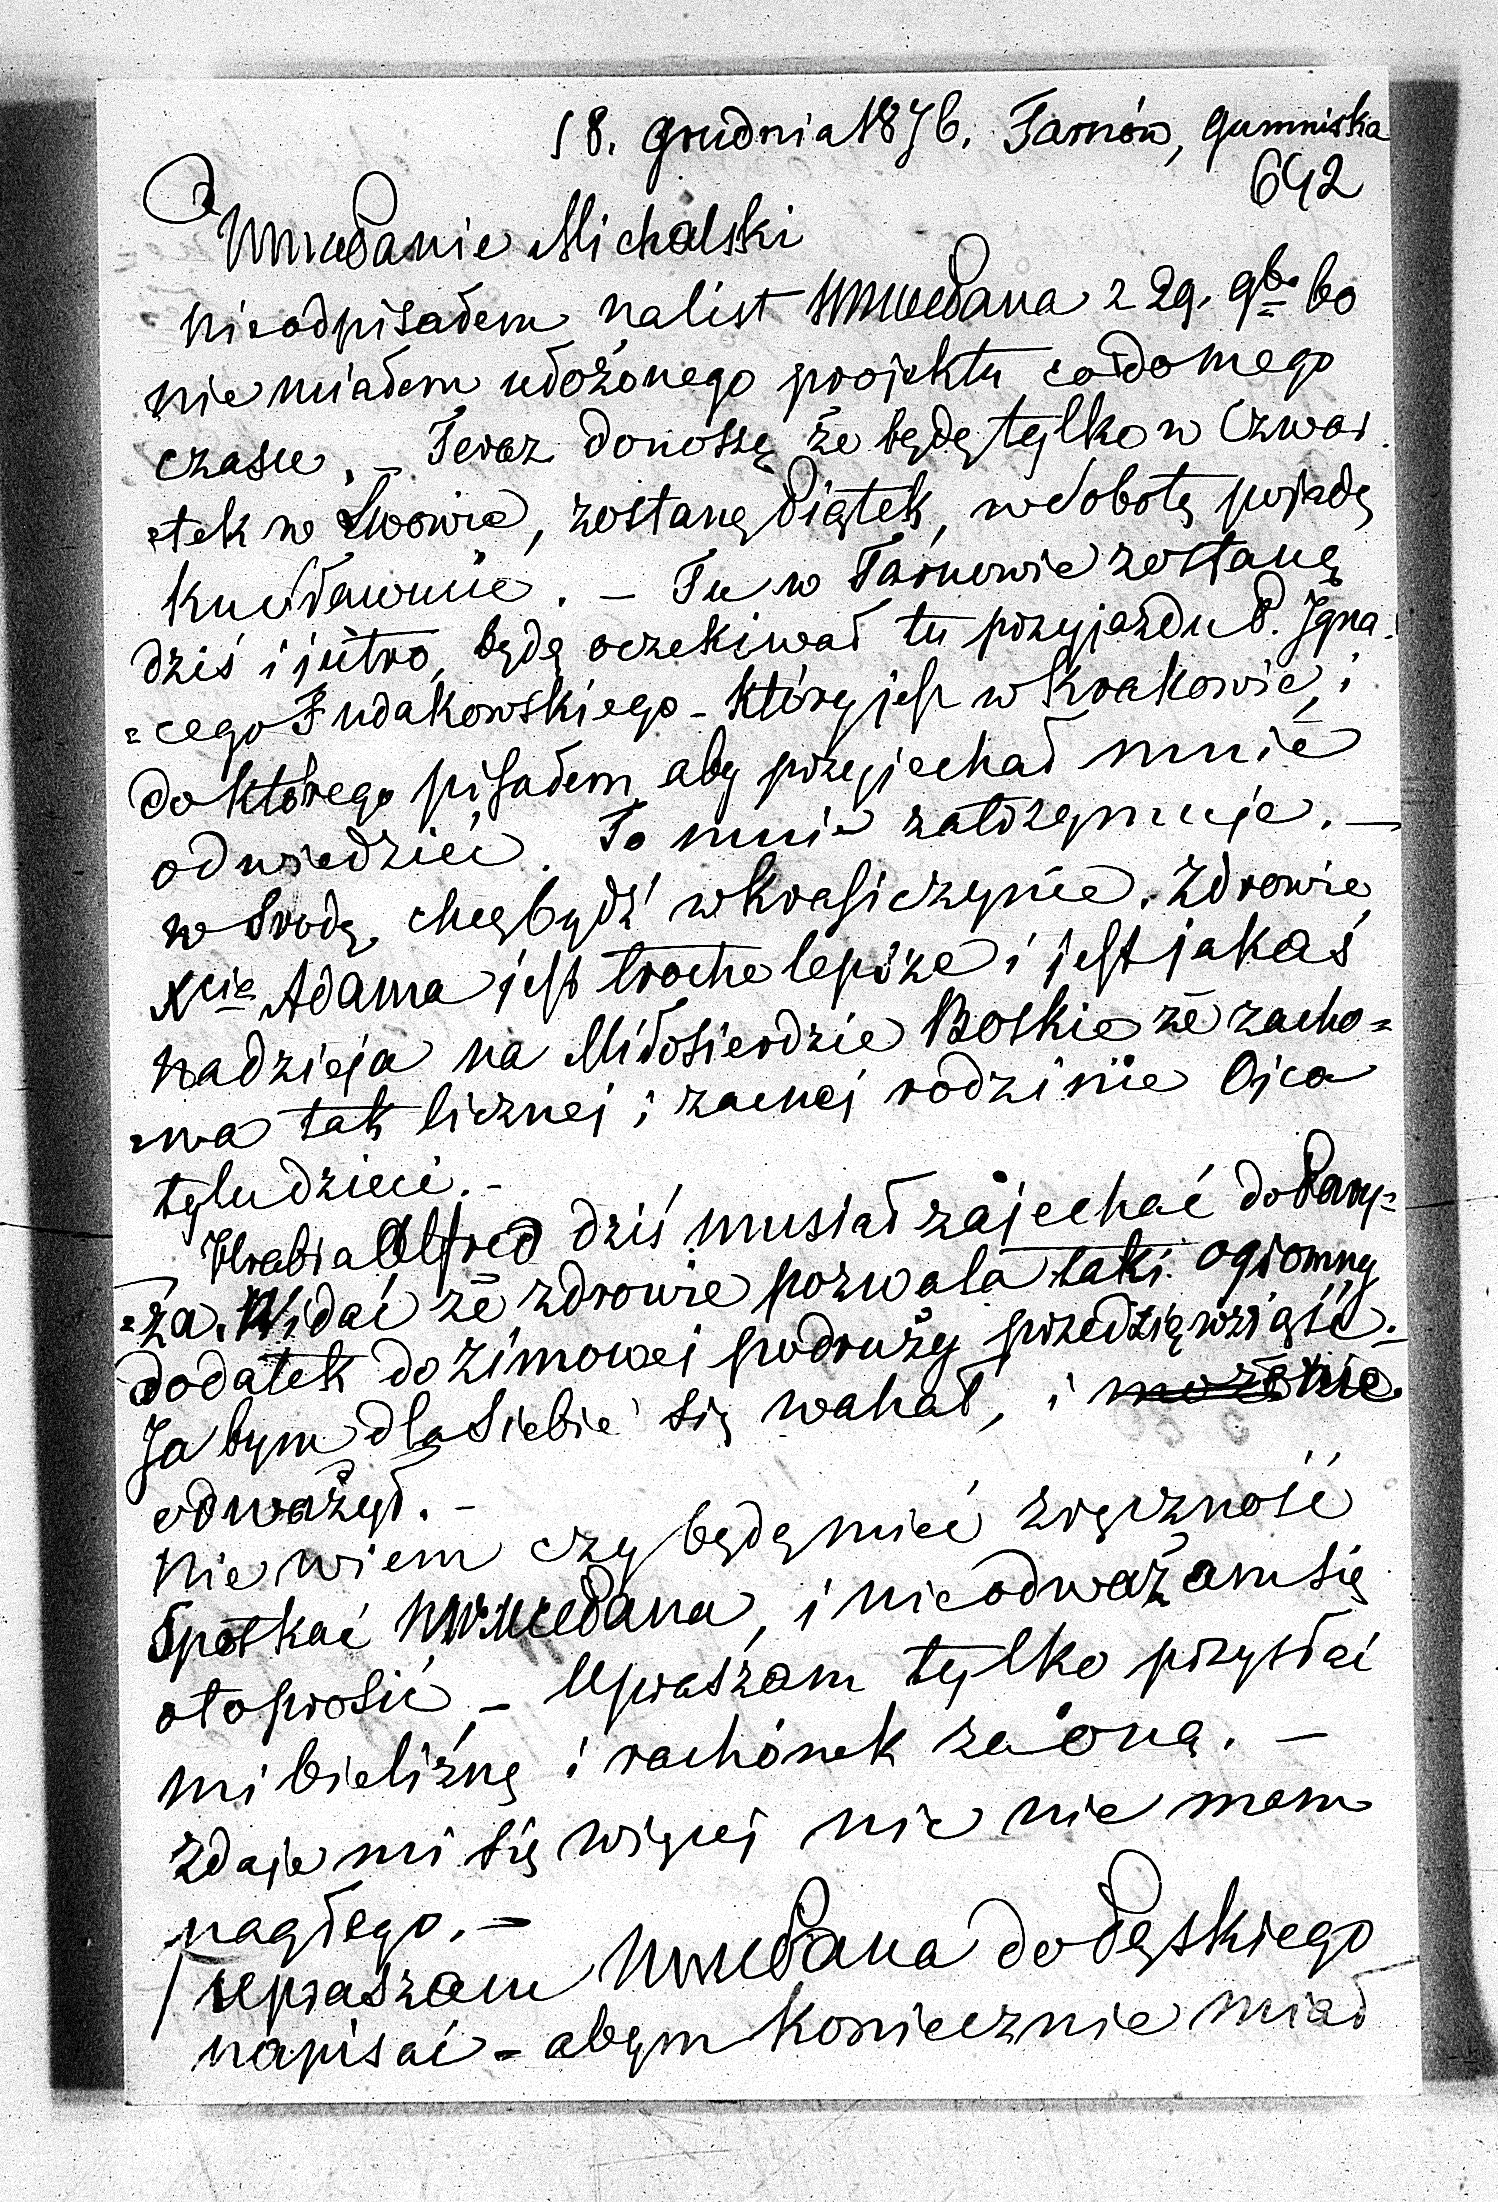 18. Grudnia 1876. Tarnów, Gumniska
642
WmuPanie Michalski
nieodpisałem na list WmuPana z 29. 9b. bo
nie miałem ułożonego projektu co do mego
czasu. – Teraz donoszę że będę tylko w Czwar
tek w Lwowie, zostanę Piątek, w Sobotę pojadę
ku Sławucie. – Tu w Tarnowie zostanę
dziś i jutro, będę oczekiwał tu przyjazdu P. Igna=
=cego Żudakowskiego – który jest w Krakowie, i
do którego pisałem aby przyjechał mnie
odwiedzić. To mnie zatrzymuje. –
w Srodę chcę bydź w Krasiczynie. Zdrowie
Xcia Adama jest troche lepsze i jest jakaś
nadzieja na Miłosierdzie Boskie że zacho=
=wa tak licznej i zacnej rodzinie Ojca
tylu dzieci. –
Hrabia Alfred dziś musiał zajechać do Pary=
=ża. Widać że zdrowie pozwala taki ogromny
dodatek do zimowej podruży przedzięwziąść. –
Ja bym dla Siebie się wahał, i może nie
odważył. –
Nie wiem czy będę mieć zręczność
Spotkać WmuPana, i nie odważam się
o to prosić – Upraszam tylko przysłać
mi bieliznę i rachónek za oną. –
Zdaje mi się więcej nic nie mam
nagłego. –
Upraszam WmuPana do Pęskiego
napisać – abym koniecznie miał